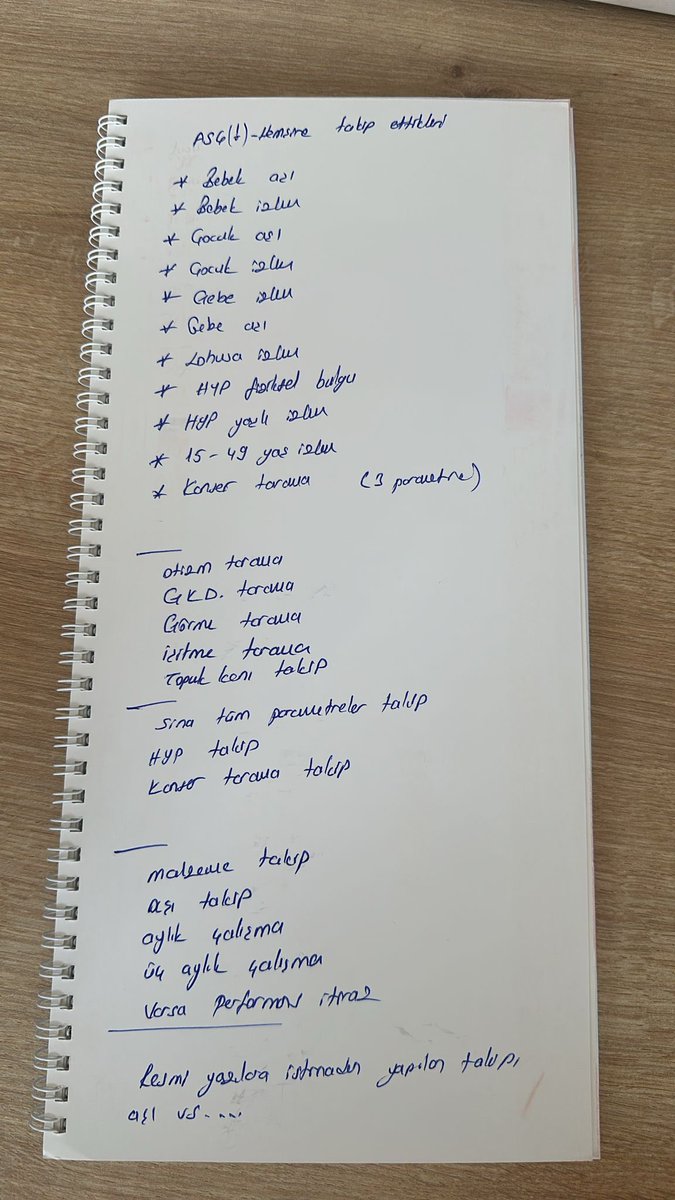 ASÇ(t)-Hemşire takip ettikleri
* Bebek aşı
* Bebek izlem
* Çocuk aşı
* Çocuk izlem
* Gebe izlem
* Gebe aşı
* Lohusa izlem
* HYP fiziksel bulgu
* HYP yaşlı izlem
* 15-49 yaş izlem
* Kanser tarama (3 parametre)
otizm tarama
GKD. tarama
Görme tarama
işitme tarama
Topuk kanı takip
Sina tüm parametreler takip
HYP takip
Kanser tarama takip
malzeme takip
aşı takip
aylık çalışma
üç aylık çalışma
Varsa performans itiraz
Resmi yazılara istinaden yapılan takip,
aşı vs....